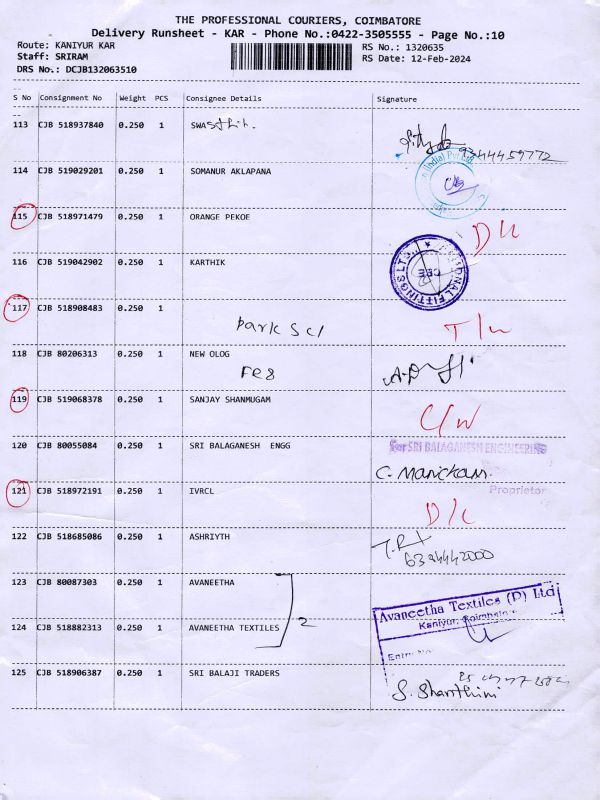 THE PROFESSIONAL COURIERS, COIMBATORE
Delivery Runsheet - KAR - Phone No.:0422-3505555 - Page No.:10
Route: KANIYUR KAR RS No.: 1320635
Staff: SRIRAM RS Date: 12-Feb-2024
DRS No.: DCJB132063510
S No Consignment No Weight PCS Consignee Details Signature
113 CJB 518937840 0.250 1 SWA
9344459772
114 CJB 519029201 0.250 1 SOMANUR AKLAPANA
115 CJB 518971479 0.250 1 ORANGE PEKOE D/L
116 CJB 519042902 0.250 1 KARTHIK
FITTINGS LTD
117 CJB 518908483 0.250 1
park scl
118 CJB 80206313 0.250 1 NEW OLOG
Fe8
119 CJB 519068378 0.250 1 SANJAY SHANMUGAM C/W
120 CJB 80055084 0.250 1 SRI BALAGANESH ENGG for SRI BALAGANESH ENGINEERING
C. Manickam.
Proprietor
121 CJB 518972191 0.250 1 IVRCL D/L
122 CJB 518685086 0.250 1 ASHRIYTH
123 CJB 80087303 0.250 1 AVANEETHA
2
Avaneetha Textiles (P) Ltd
Kaniyur, Coimbatore
Entry No
124 CJB 518882313 0.250 1 AVANEETHA TEXTILES
125 CJB 518906387 0.250 1 SRI BALAJI TRADERS
S. Shanthini